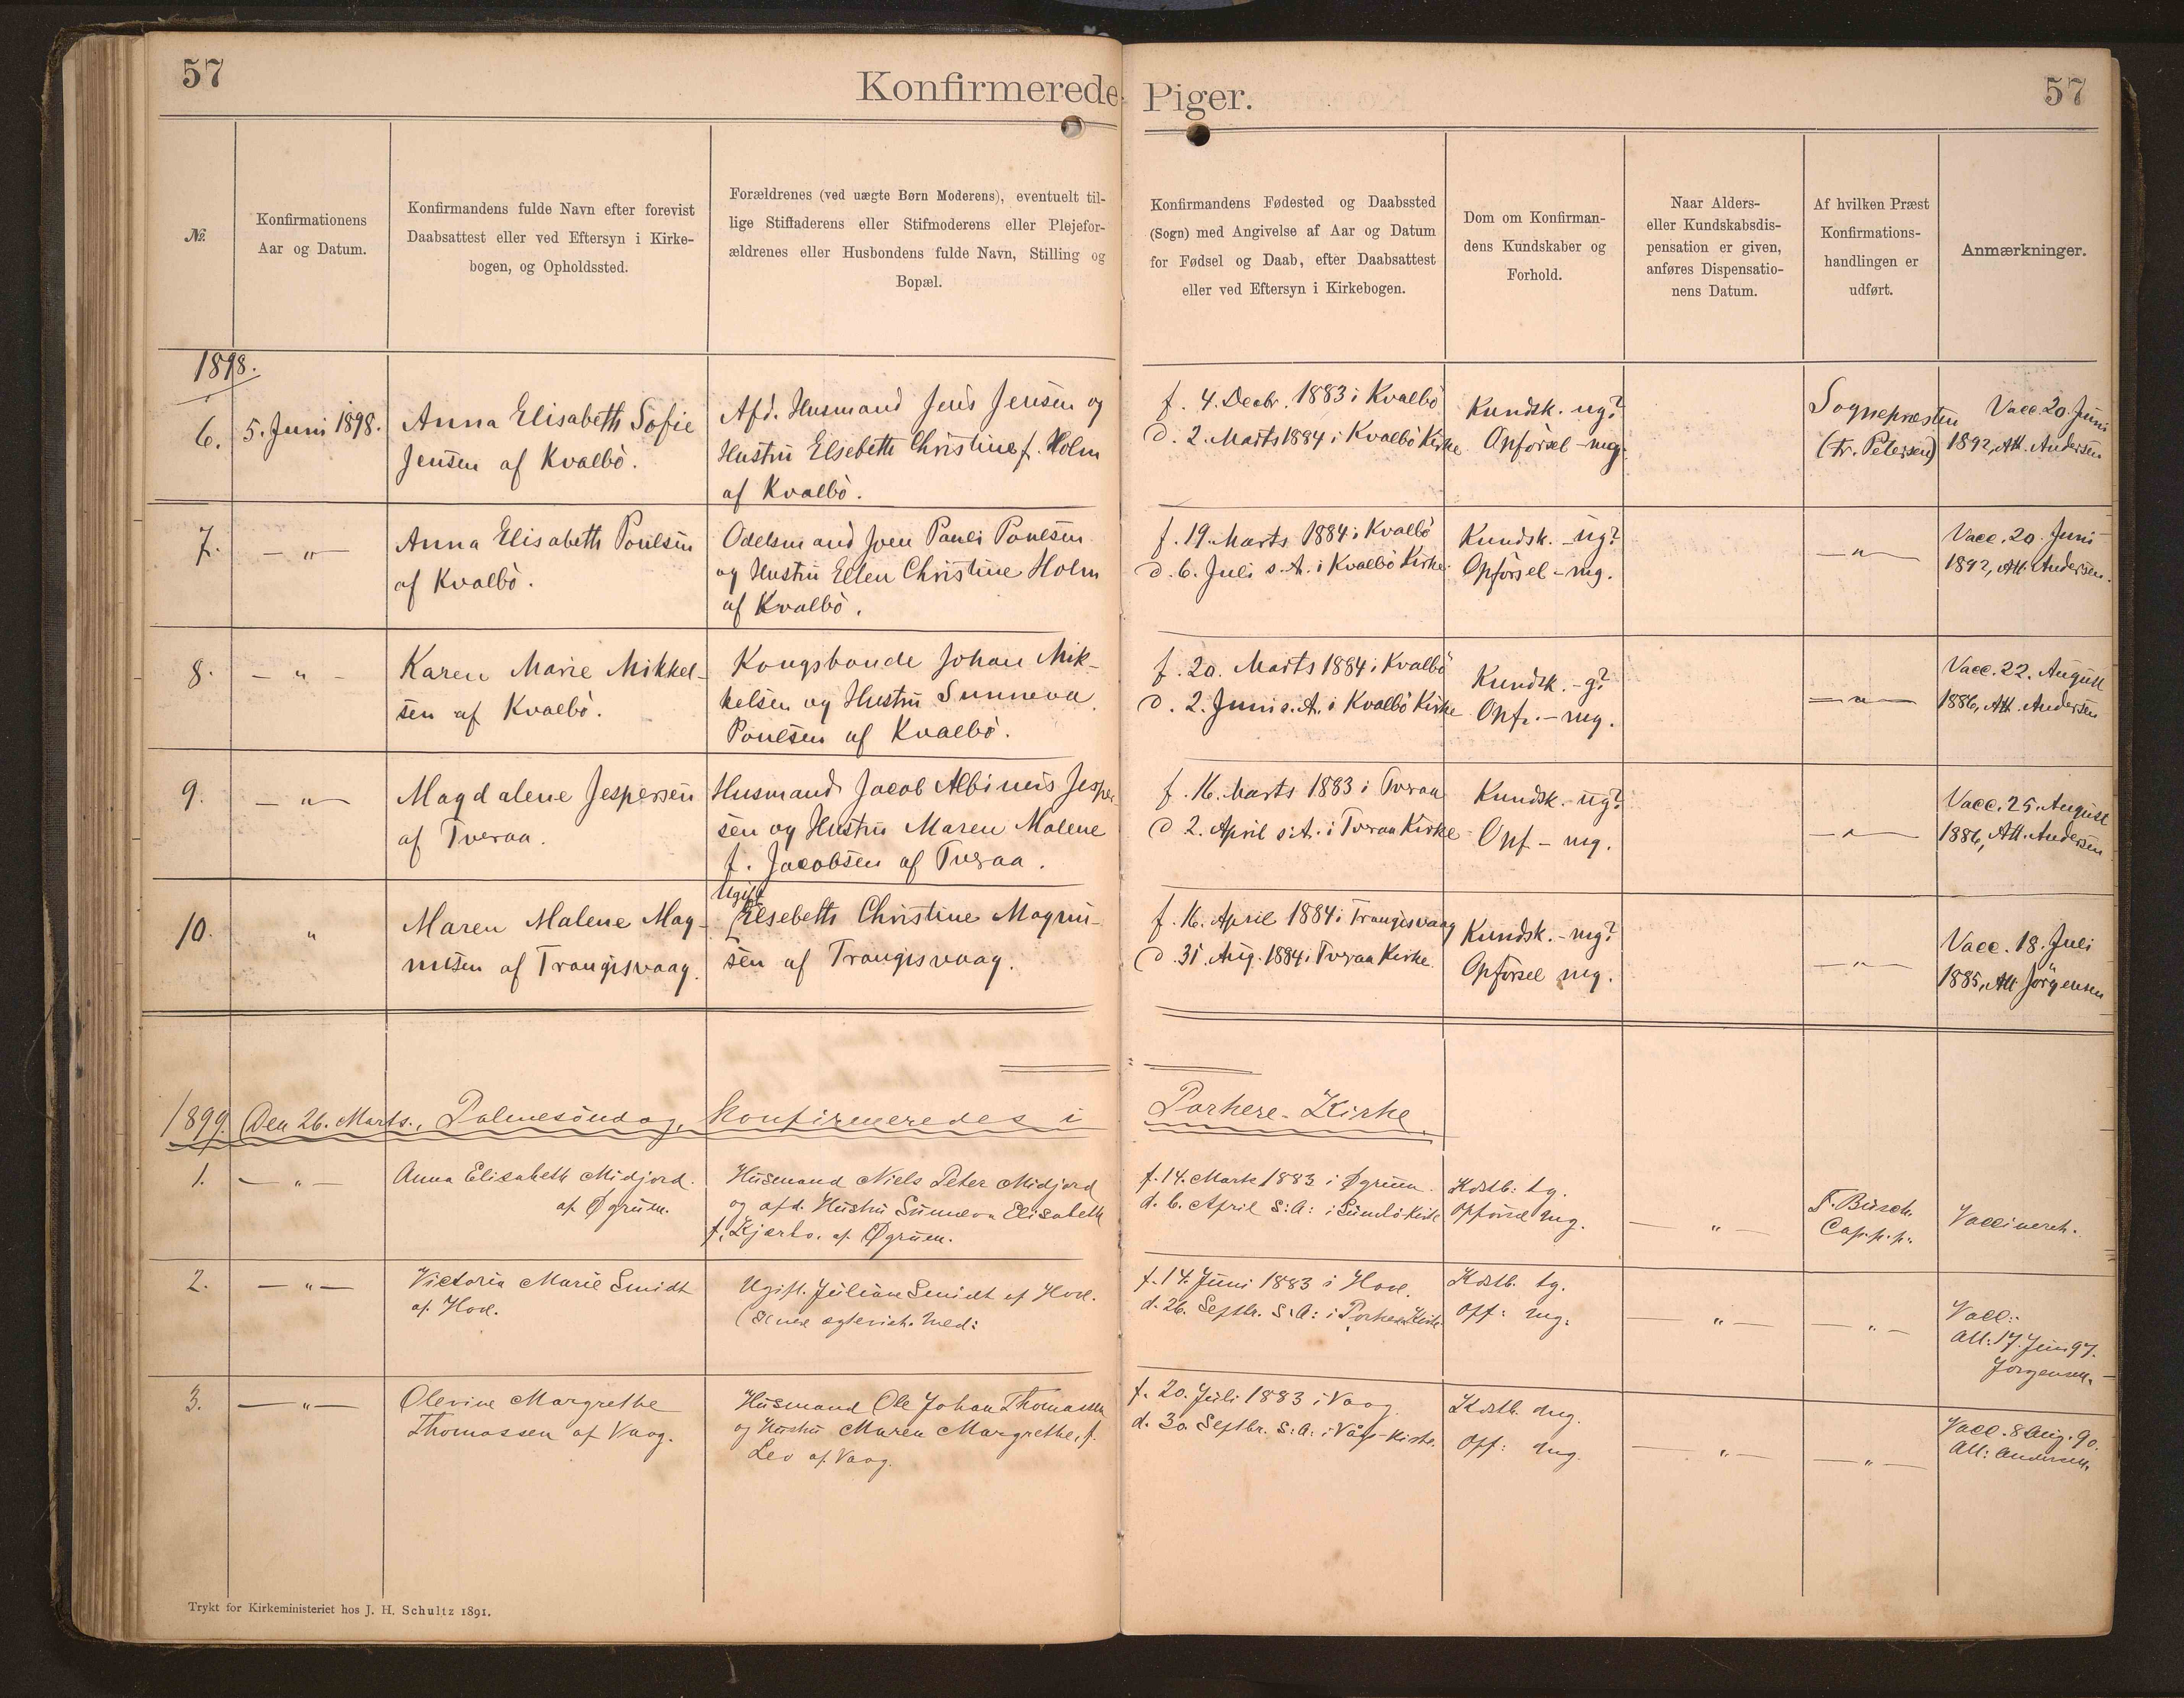 57
Konfirmerede Piger.
57
№.
Konfirmationens
Aar og Datum.
Konfirmandens fulde Navn efter forevist
Daabsattest eller ved Eftersyn i Kirke-
bogen, og Opholdssted.
Forældrenes (ved uægte Børn Moderens), eventuelt til-
lige Stiffaderens eller Stifmoderens eller Plejefor-
ældrenes eller Husbondens fulde Navn, Stilling og
Bopæl.
Konfirmandens Fødested og Daabssted
(Sogn) med Angivelse af Aar og Datum
for Fødsel og Daab, efter Daabsattest
eller ved Eftersyn i Kirkebogen.
Dom om Konfirman-
dens Kundskaber og
Forhold.
Naar Alders-
eller Kundskabsdis-
pensation er given,
anføres Dispensatio-
nens Datum.
Af hvilken Præst
Konfirmations-
handlingen er
udført.
Anmærkninger.
1898.
6.
5. Juni 1898.
Anna Elisabeth Sofie
Jensen af Kvalbö.
Afd. Husmand Jens Jensen og
Hustru Elsebeth Christine f. Holm
af Kvalbö.
f. 4. Decbr. 1883 i Kvalbö
d. 2. Marts 1884 i Kvalbö Kirke
Kundsk. ug?
Opförsel - mg.
Sognepræsten
(Fr. Petersen)
Vacc. 20. Juni
1892, Att. Andersen
7.
— " —
Anna Elisabeth Poulsen
af Kvalbö.
Odelsmand Joen Pauli Poulsen
og Hustru Ellen Christine Holm
af Kvalbö.
f. 19. Marts 1884 i Kvalbö
d. 6. Juli s. A. i Kvalbö Kirke.
Kundsk. - ug?
Opförsel - mg.
— " —
Vacc. 20. Juni
1892, Att. Andersen.
8.
— " —
Karen Marie Mikkel-
sen af Kvalbö.
Kongsbonde Johan Mik-
kelsen og Hustru Sunneva
Poulsen af Kvalbö.
f. 20. Marts 1884 i Kvalbö
d. 2. Juni s. A. i Kvalbö Kirke
Kundsk. - g?
Opf. - mg.
— " —
Vacc. 22. August
1886, Att. Andersen
9.
— " —
Magdalene Jespersen
af Tveraa.
Husmand Jacob Albinus Jesper
sen og Hustru Maren Malene
f. Jacobsen af Tveraa.
f. 16. Marts 1883 i Tveraa
d 2. April s. A. i Tveraa Kirke
Kundsk. - ug?
Opf - mg.
— " —
Vacc. 25. August
1886, Att. Andersen
10.
"
Maren Malene Mag-
nusen af Trangisvaag.
Ugift
Elsebeth Christine Magnu-
sen af Trangisvaag.
f. 16. April 1884 i Trangisvaag
d. 31. Aug. 1884 i Tveraa Kirke.
Kundsk. - mg?
Opförsel mg.
— " —
Vacc. 18. Juli
1885, Att Jörgensen
1899. Den 26. Marts., Palmesöndag, Konfirmeredes i Porkere-Kirke.
1.
— " —
Anna Elisabeth Midjord.
af Øgrum.
Husmand Niels Peter Midjord
og afd. Hustru Sunneva Elisabeth
f. Kjærbo. af Øgrum.
f. 14. Marts 1883 i Øgrum.
d. 6. April S: A: i Sumbö Kirke
Kdstb: tg.
opförsel mg.
— " —
F. Busch.
Cap. p. p.
Vaccineret.
2.
— " —
Victoria Marie Smidt
af Hove.
Ugift. Juliane Smidt af Hove.
f. 14. Juni 1883 i Hove.
d. 26. Septbr. S: A: i Porkere Kirke.
Kdstb. tg.
Opf: mg.
— " —
— " —
Vacc:
Att: 17. Juni 97.
Jorgensen. —
3.
— " —
Olevine Margrethe
Thomassen af Vaag.
Husmand Ole Johan Thomassen
og Hustru Maren Margrethe, f.
Lev af Vaag.
f. 20. Juli 1883 i Vaag.
d. 30. Septbr. S: A: i Vågs-Kirke.
Kdstb. dug.
Opf: dug
— " —
— " —
Vacc. 8 Aug. 90.
Att: Andersen.
Trykt for Kirkeministeriet hos J. H. Schultz 1891.